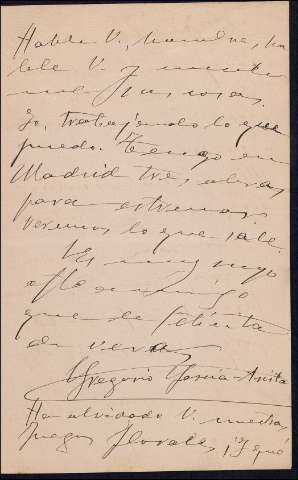 Hable V., hombre, ha
ble V. y cuénte
me sus cosas.
Yo, trabajando lo que
puedo. Tengo en
Madrid tres obras
para estrenar,
veremos lo que sale.
Es muy suyo
afmo amigo
que le felicita
de veras
Gregorio García-Arista
Ha olvidado V. nuestros
Juegos Florales, ¿y qué